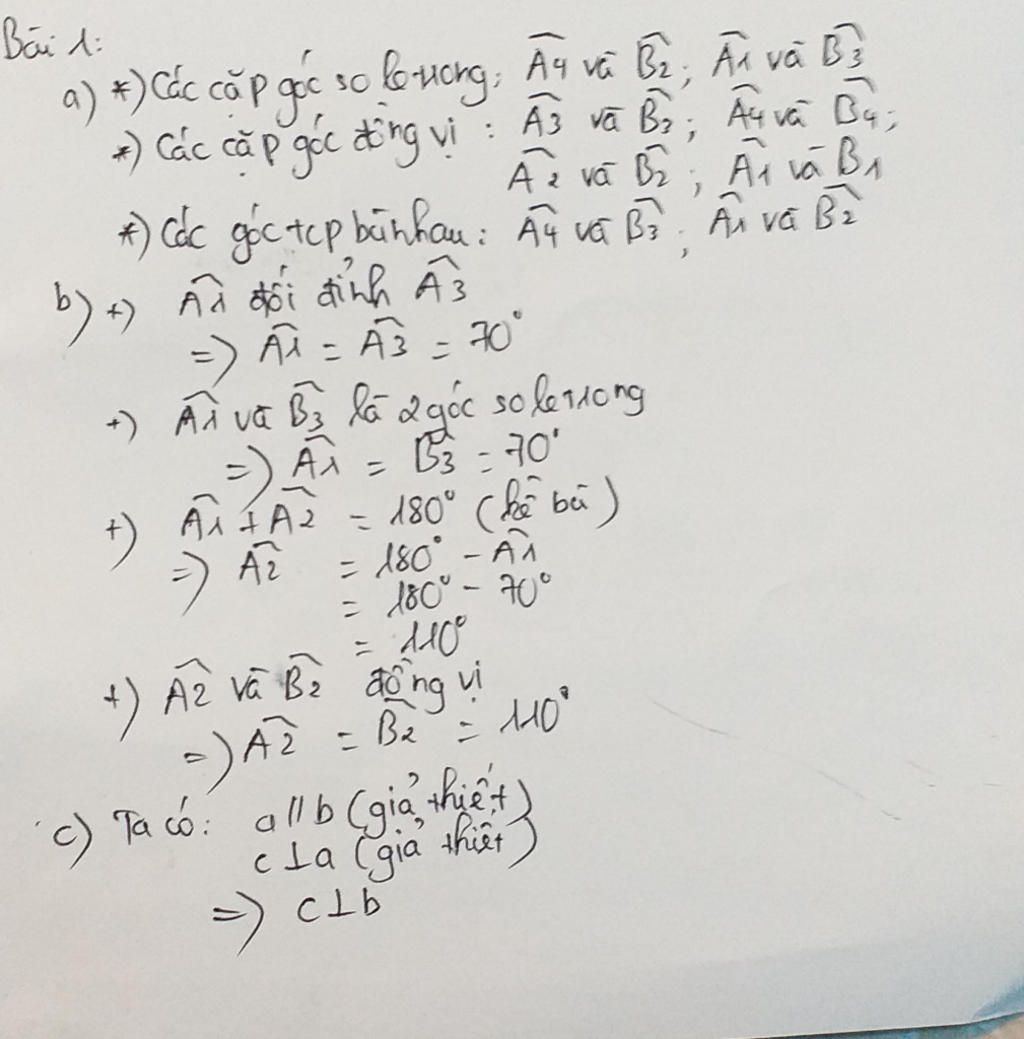 Bài 1:
a) *) Các cặp góc so le trong: Â4 và B̂2; Â1 và B̂3
*) Các cặp góc đồng vị: Â3 và B̂3; Â4 và B̂4;
Â2 và B̂2; Â1 và B̂1
*) Các góc tcp bù nhau: Â4 và B̂3; Â1 và B̂2
b) +) Â1 đối đỉnh Â3
=> Â1 = Â3 = 70°
+) Â1 và B̂3 là 2 góc so le trong
=> Â1 = B̂3 = 70°
+) Â1 + Â2 = 180° (kề bù)
=> Â2 = 180° - Â1
= 180° - 70°
= 110°
+) Â2 và B̂2 đồng vị
=> Â2 = B̂2 = 110°
c) Ta có: a//b (giả thiết)
c⊥a (giả thiết)
=> c⊥b